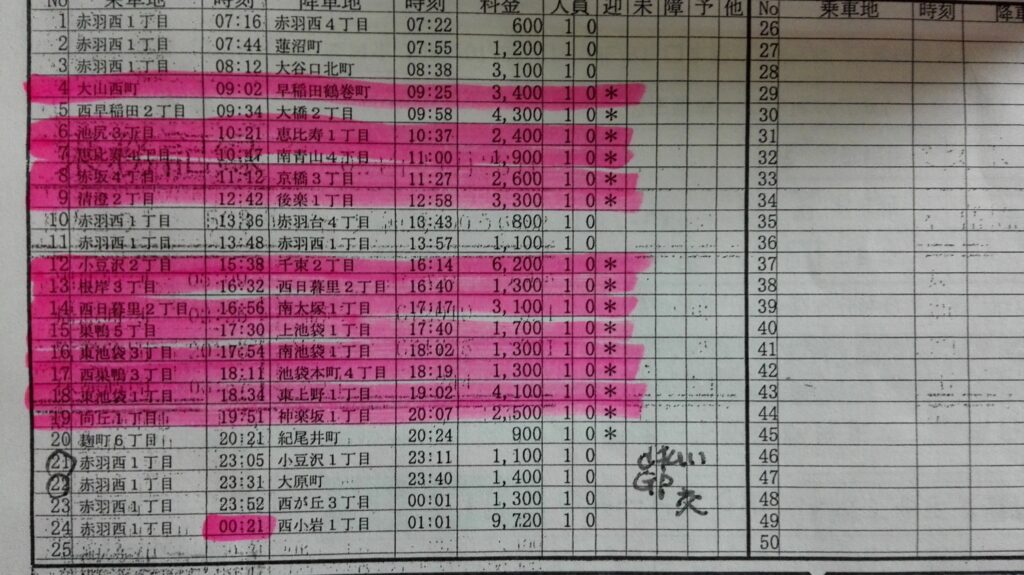 No 乗車地 時刻 降車地 時刻 料金 人員 迎 未 障 予 他 No 乗車地 時刻 降車
1 赤羽西1丁目 07:16 赤羽西4丁目 07:22 600 1 0 26
2 赤羽西1丁目 07:44 蓮沼町 07:55 1,200 1 0 27
3 赤羽西1丁目 08:12 大谷口北町 08:38 3,100 1 0 28
4 大山西町 09:02 早稲田鶴巻町 09:25 3,400 1 0 * 29
5 西早稲田2丁目 09:34 大橋2丁目 09:58 4,300 1 0 * 30
6 池尻3丁目 10:21 恵比寿1丁目 10:37 2,400 1 0 * 31
7 恵比寿4丁目 10:47 南青山4丁目 11:00 1,900 1 0 * 32
8 赤坂4丁目 11:12 京橋3丁目 11:27 2,600 1 0 * 33
9 清澄2丁目 12:42 後楽1丁目 12:58 3,300 1 0 * 34
10 赤羽西1丁目 13:36 赤羽台4丁目 13:43 800 1 0 35
11 赤羽西1丁目 13:48 赤羽西1丁目 13:57 1,100 1 0 36
12 小豆沢2丁目 15:38 千束2丁目 16:14 6,200 1 0 * 37
13 根岸3丁目 16:32 西日暮里2丁目 16:40 1,300 1 0 * 38
14 西日暮里2丁目 16:56 南大塚1丁目 17:17 3,100 1 0 * 39
15 巣鴨5丁目 17:30 上池袋1丁目 17:40 1,700 1 0 * 40
16 東池袋3丁目 17:54 南池袋1丁目 18:02 1,300 1 0 * 41
17 西巣鴨3丁目 18:11 池袋本町4丁目 18:19 1,300 1 0 * 42
18 東池袋1丁目 18:34 東上野1丁目 19:02 4,100 1 0 * 43
19 向丘1丁目 19:51 神楽坂1丁目 20:07 2,500 1 0 * 44
20 麹町6丁目 20:21 紀尾井町 20:24 900 1 0 * 45
21 赤羽西1丁目 23:05 小豆沢1丁目 23:11 1,100 1 0 46
22 赤羽西1丁目 23:31 大原町 23:40 1,400 1 0 47
23 赤羽西1丁目 23:52 西が丘3丁目 00:01 1,300 1 0 48
24 赤羽西1丁目 00:21 西小岩1丁目 01:01 9,720 1 0 49
25 50